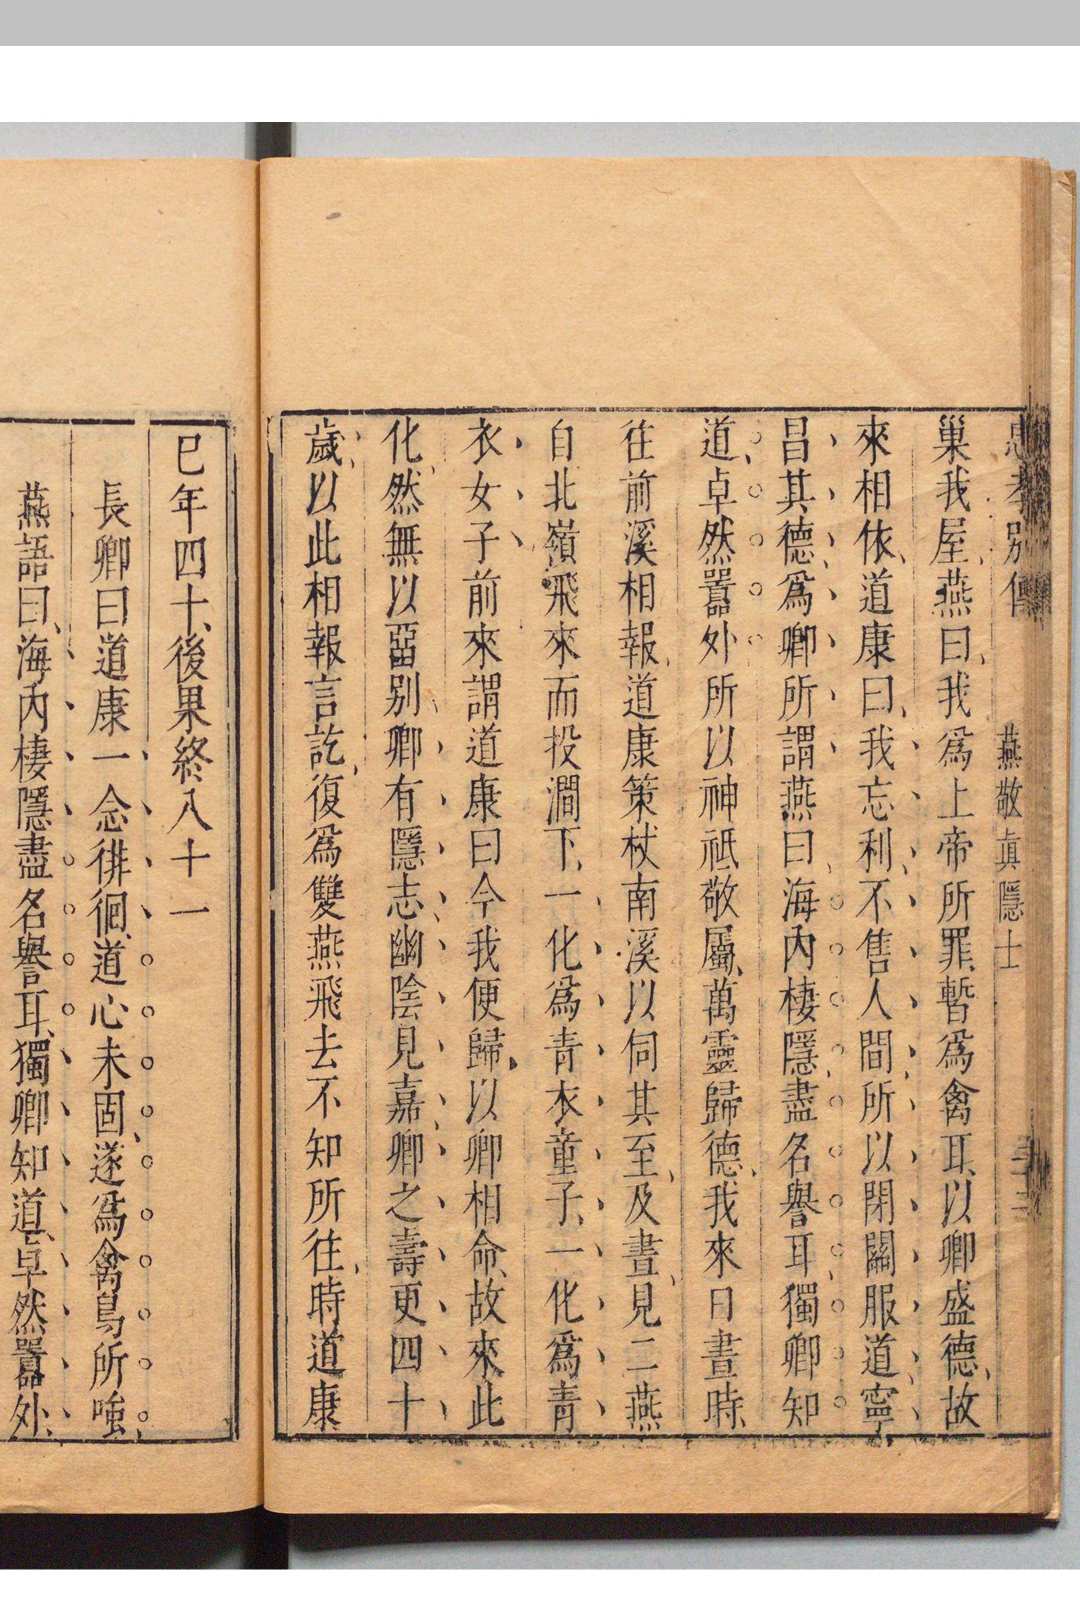 燕敬真隱士
巢我屋燕曰我爲上帝所罪暫爲禽耳以卿盛德故
來相依道康曰我忘利不售人間所以閉關服道寧
昌其德爲卿所謂燕曰海內棲隱盡名譽耳獨卿知
道卓然囂外所以神祗敬屬萬靈歸德我來日晝時
往前溪相報道康策杖南溪以伺其至及晝見二燕
自北嶺飛來而投澗下一化爲青衣童子一化爲青
衣女子前來謂道康曰今我便歸以卿相命故來此
化然無以畱別卿有隱志幽陰見嘉卿之壽更四十
歲以此相報言訖復爲雙燕飛去不知所往時道康
已年四十後果終八十一
長卿曰道康一念徘徊道心未固遂爲禽鳥所嗤
燕語曰海內棲隱盡名譽耳獨卿知道卓然囂外